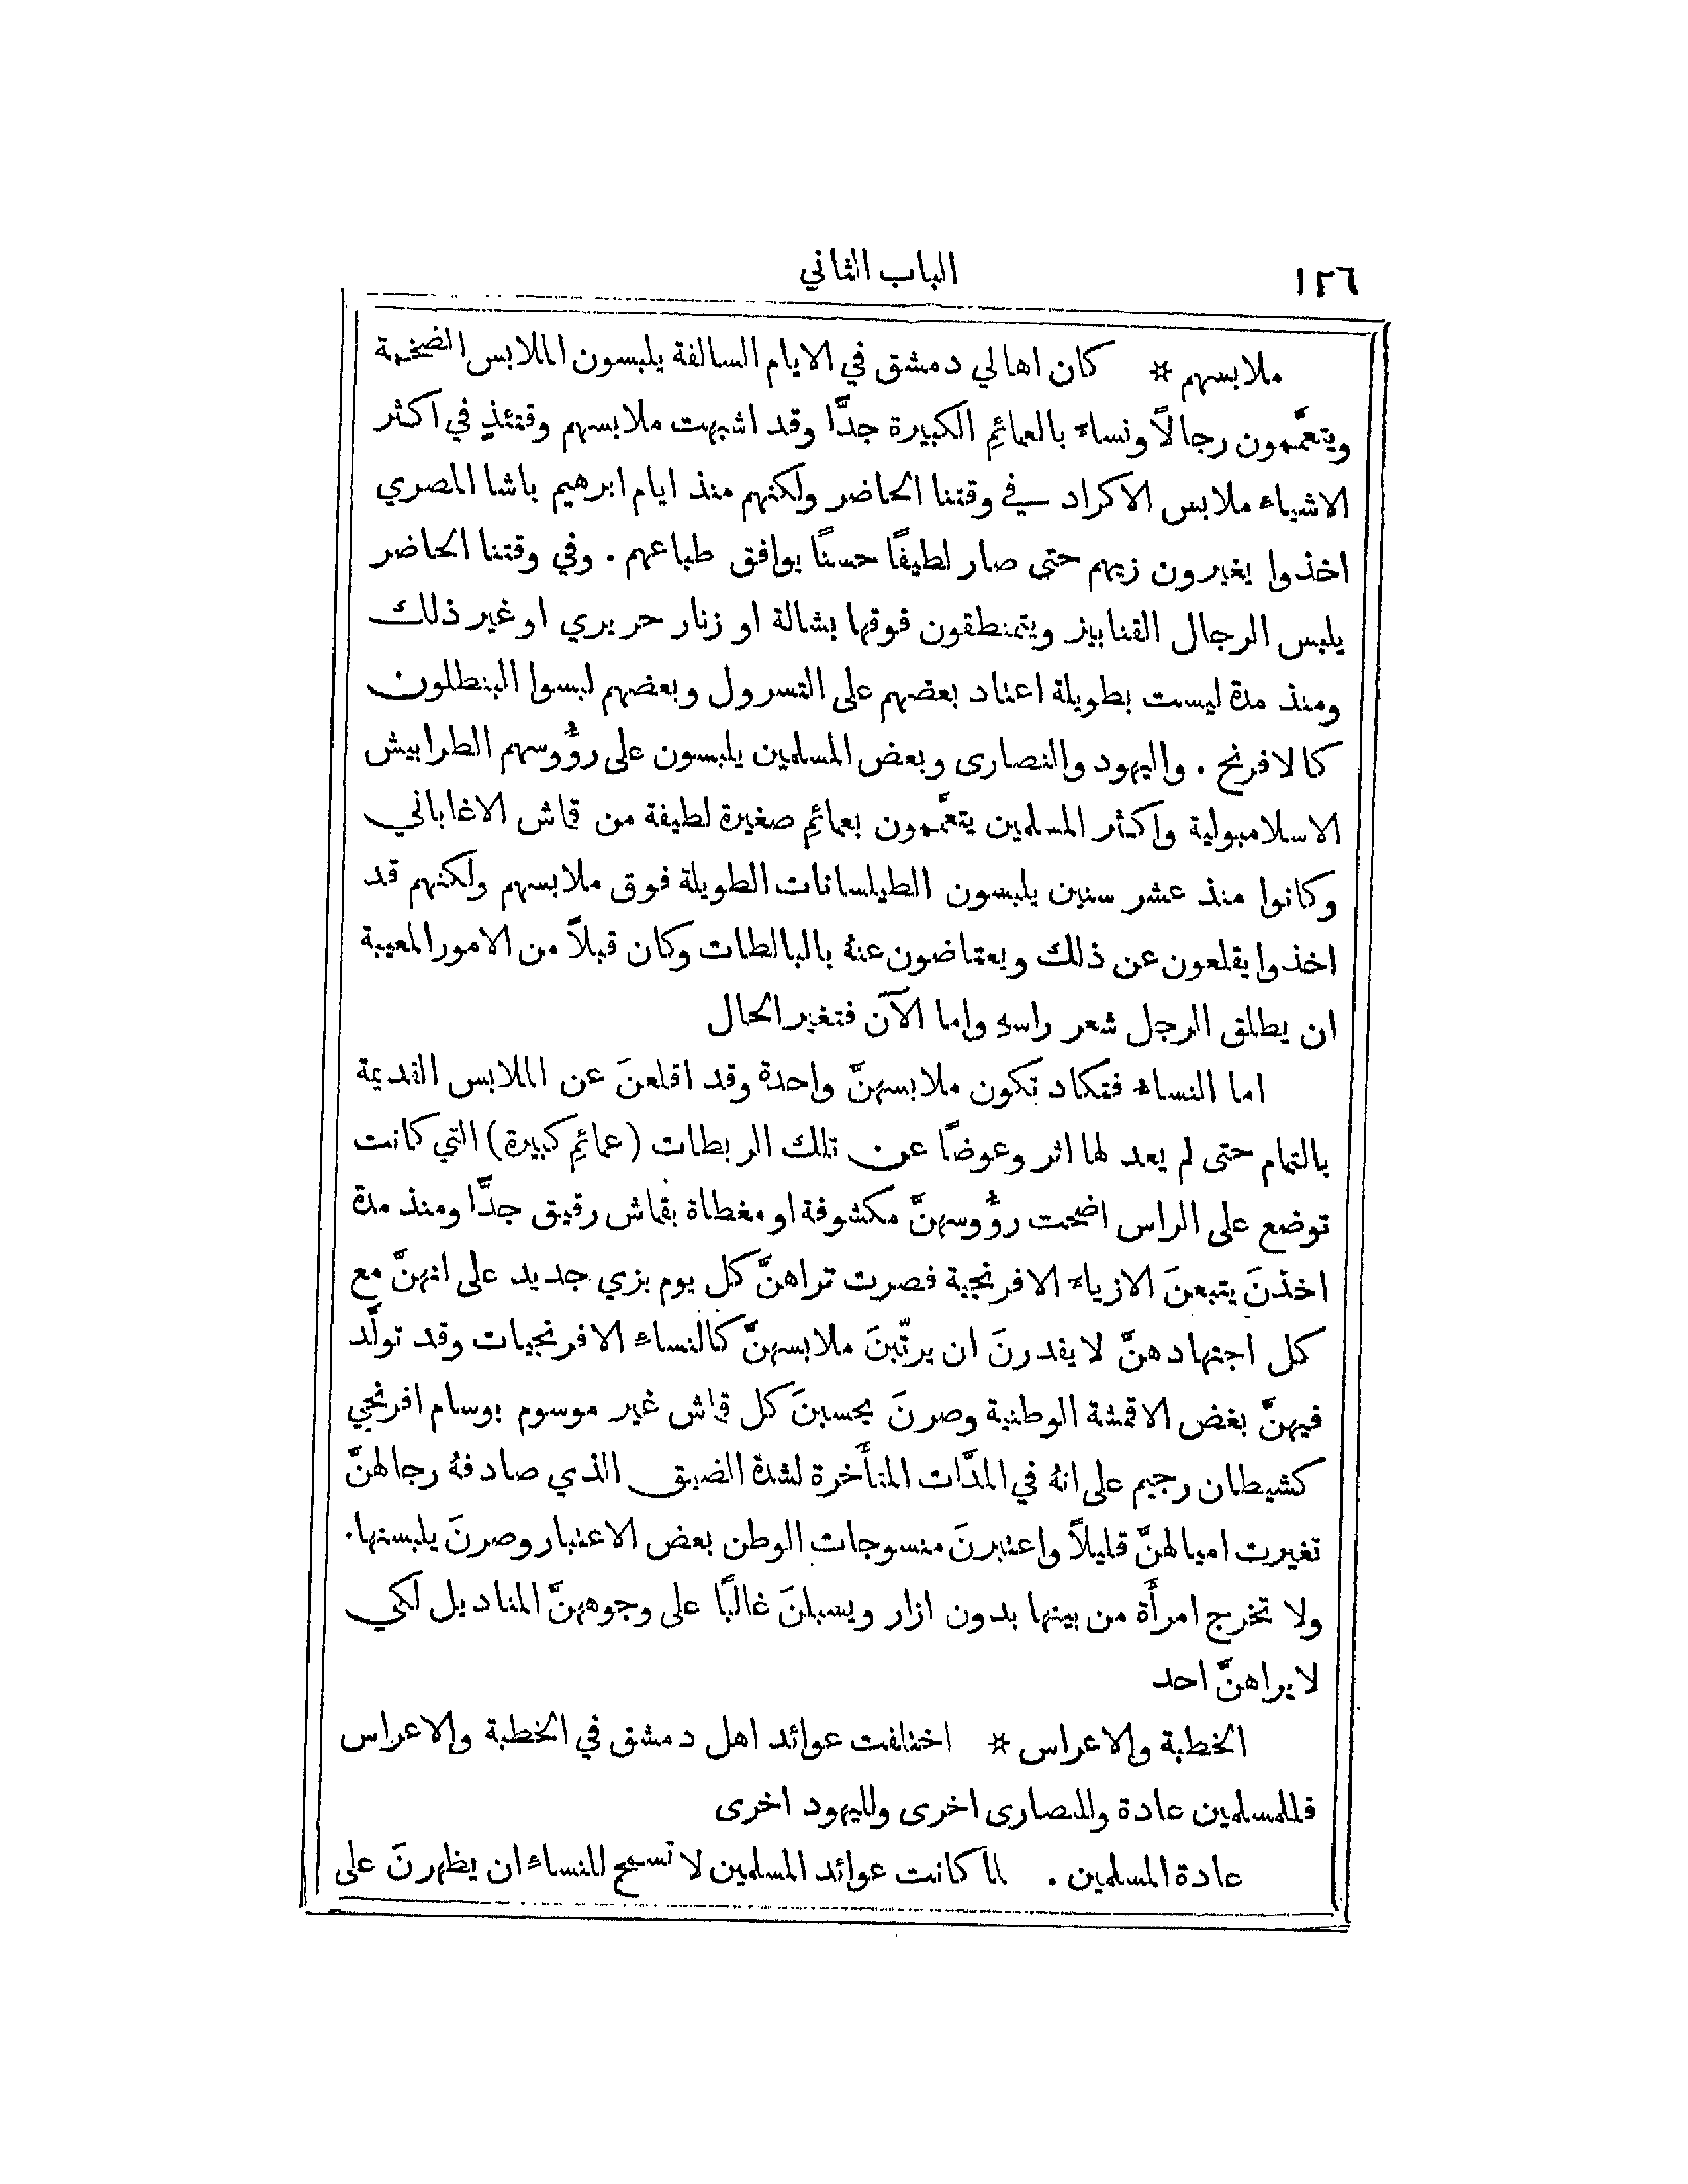 ١٢٦ الباب الثاني
ملابسهم * كان اهالي دمشق في الايام السالفة يلبسون الملابس الضخمة
ويتعمَّمون رجالاً ونساءً بالعمائمِ الكبيرة جدًّا وقد اشبهت ملابسهم وقتئذٍ في اكثر
الاشياء ملابس الاكراد في وقتنا الحاضر ولكنهم منذ ايام ابرهيم باشا المصري
اخذوا يغيرون زيهم حتى صار لطيفًا حسنًا يوافق طباعهم . وفي وقتنا الحاضر
يلبس الرجال القنابيز ويتمنطقون فوقها بشالة او زنار حريري او غير ذلك
ومنذ مدة ليست بطويلة اعتاد بعضهم على التسرول وبعضهم لبسوا البنطلون
كالافرنج . واليهود والنصارى وبعض المسلمين يلبسون على رؤُوسهم الطرابيش
الاسلامبولية واكثر المسلمين يتعمَّمون بعمائمِ صغيرة لطيفة من قماش الاغاباني
وكانوا منذ عشر سنين يلبسون الطيلسانات الطويلة فوق ملابسهم ولكنهم قد
اخذوا يقلعون عن ذلك ويعتاضون عنهُ بالبالطات وكان قبلاً من الامور المعيبة
ان يطلق الرجل شعر راسهِ واما الآن فتغير الحال
اما النساء فتكاد تكون ملابسهنَّ واحدة وقد اقلعنَ عن الملابس القديمة
بالتمام حتى لم يعد لها اثر وعوضًا عن تلك الربطات (عمائمِ كبيرة) التي كانت
توضع على الراس اضحت رؤُوسهنَّ مكشوفة او مغطاة بقماش رقيق جدًّا ومنذ مدة
اخذنَ يتبعنَ الازياء الافرنجية فصرت تراهنَّ كل يوم بزي جديد على انهنَّ مع
كل اجتهادهنَّ لا يقدرنَ ان يرتّبنَ ملابسهنَّ كالنساء الافرنجيات وقد تولَّد
فيهنَّ بغض الاقمشة الوطنية وصرنَ يحسبنَ كل قماش غير موسوم بوسام افرنجي
كشيطان رجيم على انهُ في المدَّات المتأَخرة لشدة الضيق الذي صادفهُ رجالهنَّ
تغيرت اميالهنَّ قليلاً واعتبرنَ منسوجات الوطن بعض الاعتبار وصرنَ يلبسنها .
ولا تخرج امرأَة من بيتها بدون ازار ويسبلنَ غالبًا على وجوههنَّ المناديل لكي
لا يراهنَّ احد
الخطبة والاعراس * اختلفت عوائد اهل دمشق في الخطبة والاعراس
فللمسلمين عادة وللنصارى اخرى ولليهود اخرى
عادة المسلمين . لما كانت عوائد المسلمين لا تسمح للنساء ان يظهرنَ على